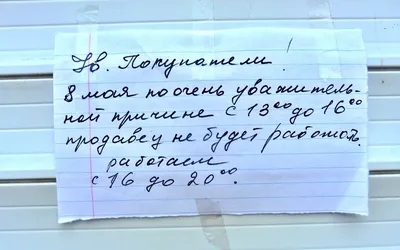 Ув. Покупатели!
8 мая по очень уважитель-
ной причине с 13⁰⁰ до 16⁰⁰
продавец не будет работать.
работаем
с 16 до 20⁰⁰.